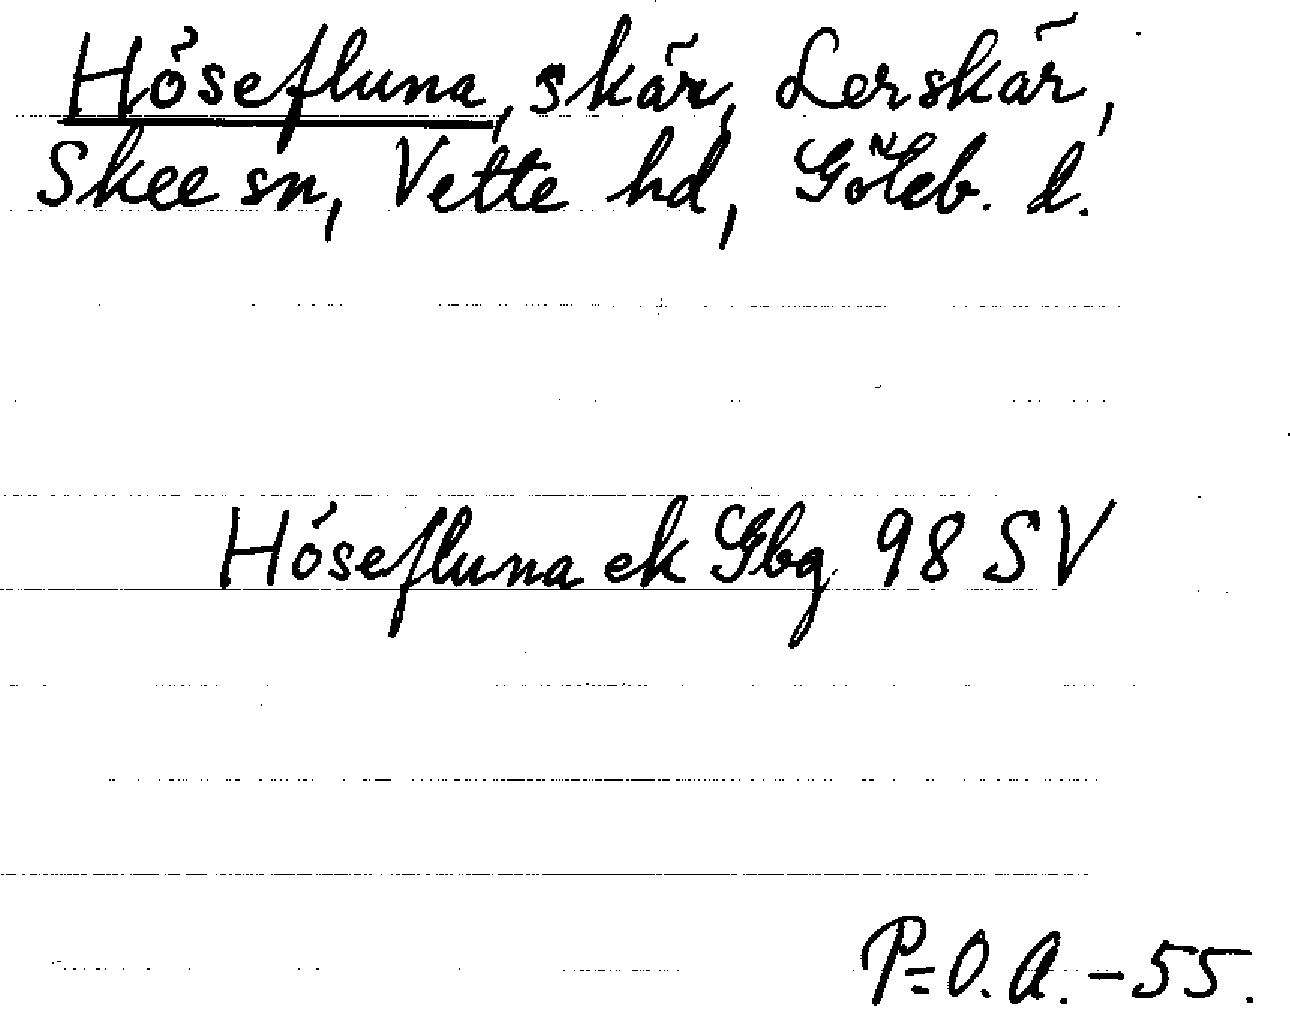 Hósefluna, skär, Lerskär,
Skee sn, Vette hd, Göteb. l.
Hósefluna ek Gbg 98 SV
P=O. A. - 55.